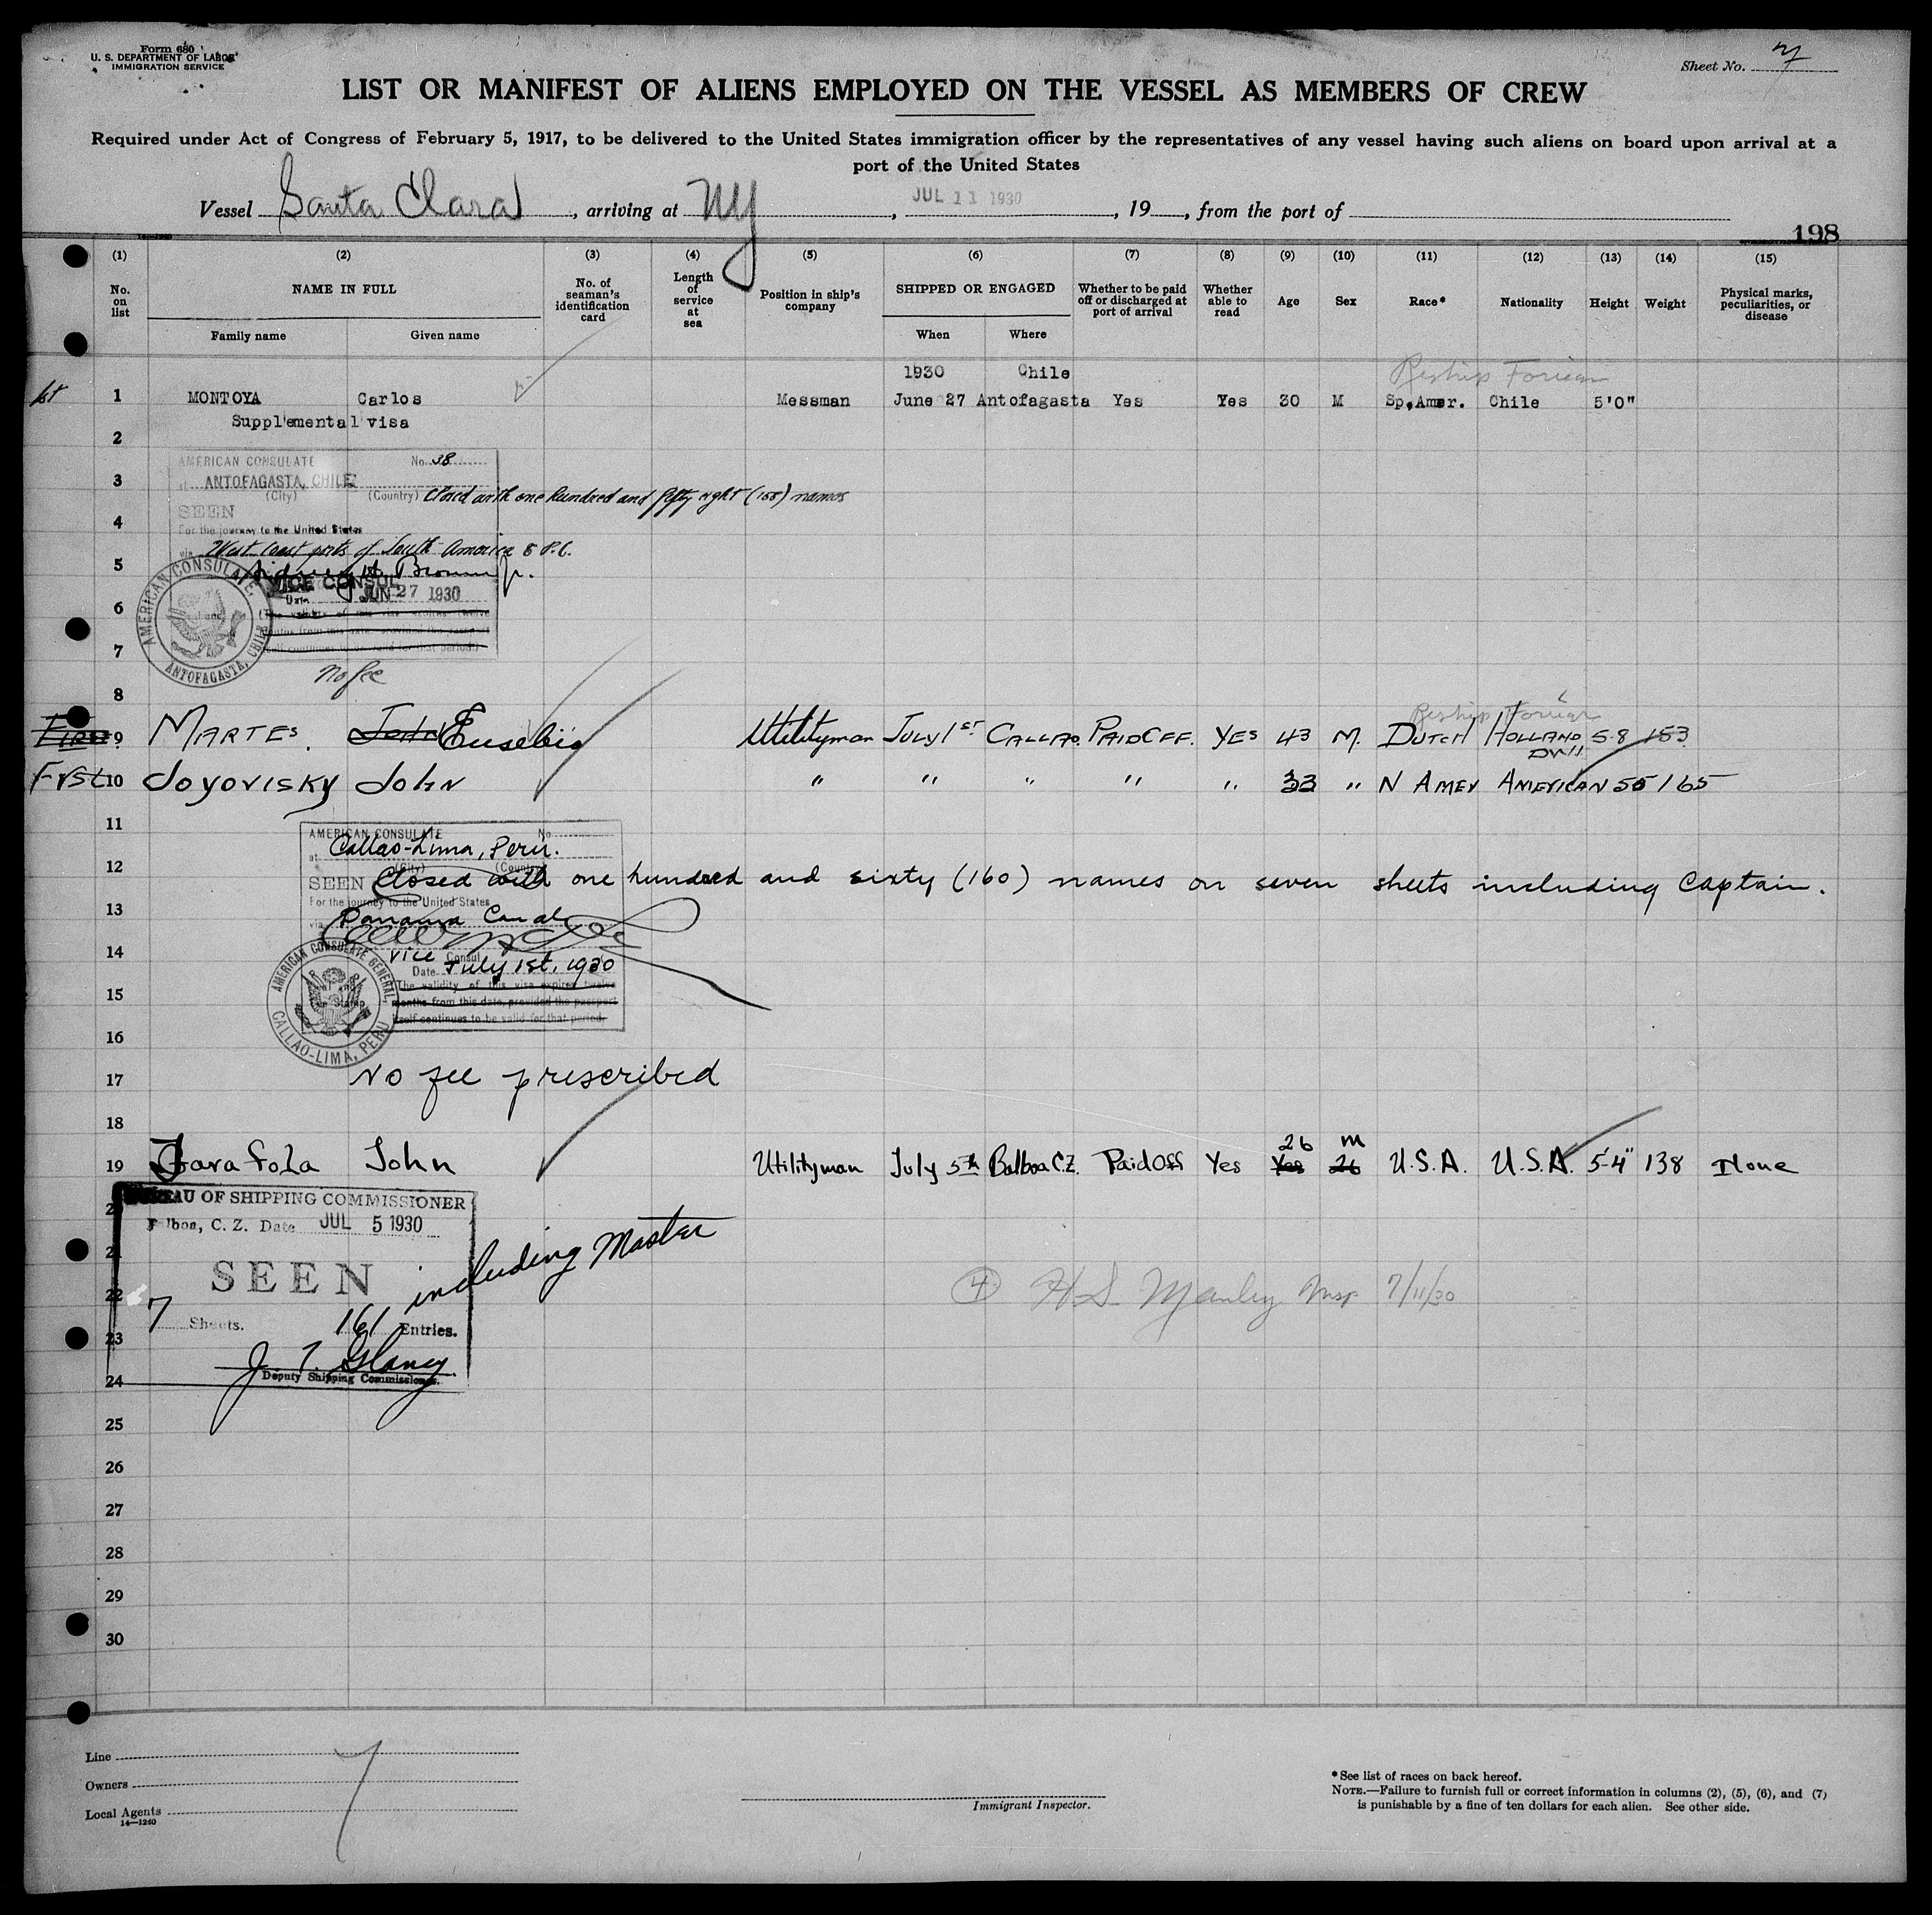 Form 680
U. S. DEPARTMENT OF LABOR
IMMIGRATION SERVICE
Sheet No. 7
LIST OR MANIFEST OF ALIENS EMPLOYED ON THE VESSEL AS MEMBERS OF CREW
Required under Act of Congress of February 5, 1917, to be delivered to the United States immigration officer by the representatives of any vessel having such aliens on board upon arrival at a
port of the United States
Vessel Santa Clara, arriving at NY, JUL 11 1930, 19, from the port of
198
(1) (2) (3) (4) (5) (6) (7) (8) (9) (10) (11) (12) (13) (14) (15)
No. on list NAME IN FULL No. of seaman's identification card Length of service at sea Position in ship's company SHIPPED OR ENGAGED Whether to be paid off or discharged at port of arrival Whether able to read Age Sex Race* Nationality Height Weight Physical marks, peculiarities, or disease
Family name Given name When Where
1930 Chile Reship Foreign
1st 1 MONTOYA Carlos Messman June 27 Antofagasta Yes Yes 30 M Sp.Amer. Chile 5'0"
Supplemental visa
2
AMERICAN CONSULATE No. 38
3 at ANTOFAGASTA, CHILE
(City) (Country) Closed with one hundred and fifty eight (158) names
4 SEEN
For the journey to the United States
via West Coast ports of South America & P.C.
5 Brown Jr.
VICE CONSUL
Date JUN 27 1930
6 (The validity of this visa expires twelve
months from this date provided the passport
7 itself continues to be valid for that period.)
AMERICAN CONSULATE ANTOFAGASTA, CHILE
No fee
8
Reship Foreign
First 9 MARTES. John Eusebio Utilityman JULY 1st CALLAO. PAID OFF. YES 43 M. DUTCH HOLLAND 5-8 153
First 10 Joyovisky John " " " " " 33 " N AMER AMERICAN 55 165
11 AMERICAN CONSULATE No.
at Callao-Lima, Peru.
12 (City) (Country)
SEEN Closed with one hundred and sixty (160) names on seven sheets including Captain.
For the journey to the United States
13 via Panama Canal
14 Vice Consul
Date July 1st, 1930
15 (The validity of this visa expires twelve
months from this date, provided the passport
itself continues to be valid for that period.
16
AMERICAN CONSULATE GENERAL, CALLAO-LIMA, PERU
17 No fee prescribed
18
26 M
19 Tarafola John Utilityman July 5th Balboa C.Z. Paid Off Yes Yes 26 U.S.A. U.S.A. 5-4" 138 None
BUREAU OF SHIPPING COMMISSIONER
Balboa, C. Z. Date JUL 5 1930
21
SEEN including Master
22 4 H.S. Manley Insp 7/11/30
7 Sheets. 161 Entries.
23
J. T. Glancy
24 Deputy Shipping Commissioner.
25
26
27
28
29
30
Line
Owners
Local Agents
14—1240
7
Immigrant Inspector.
* See list of races on back hereof.
NOTE.—Failure to furnish full or correct information in columns (2), (5), (6), and (7)
is punishable by a fine of ten dollars for each alien. See other side.